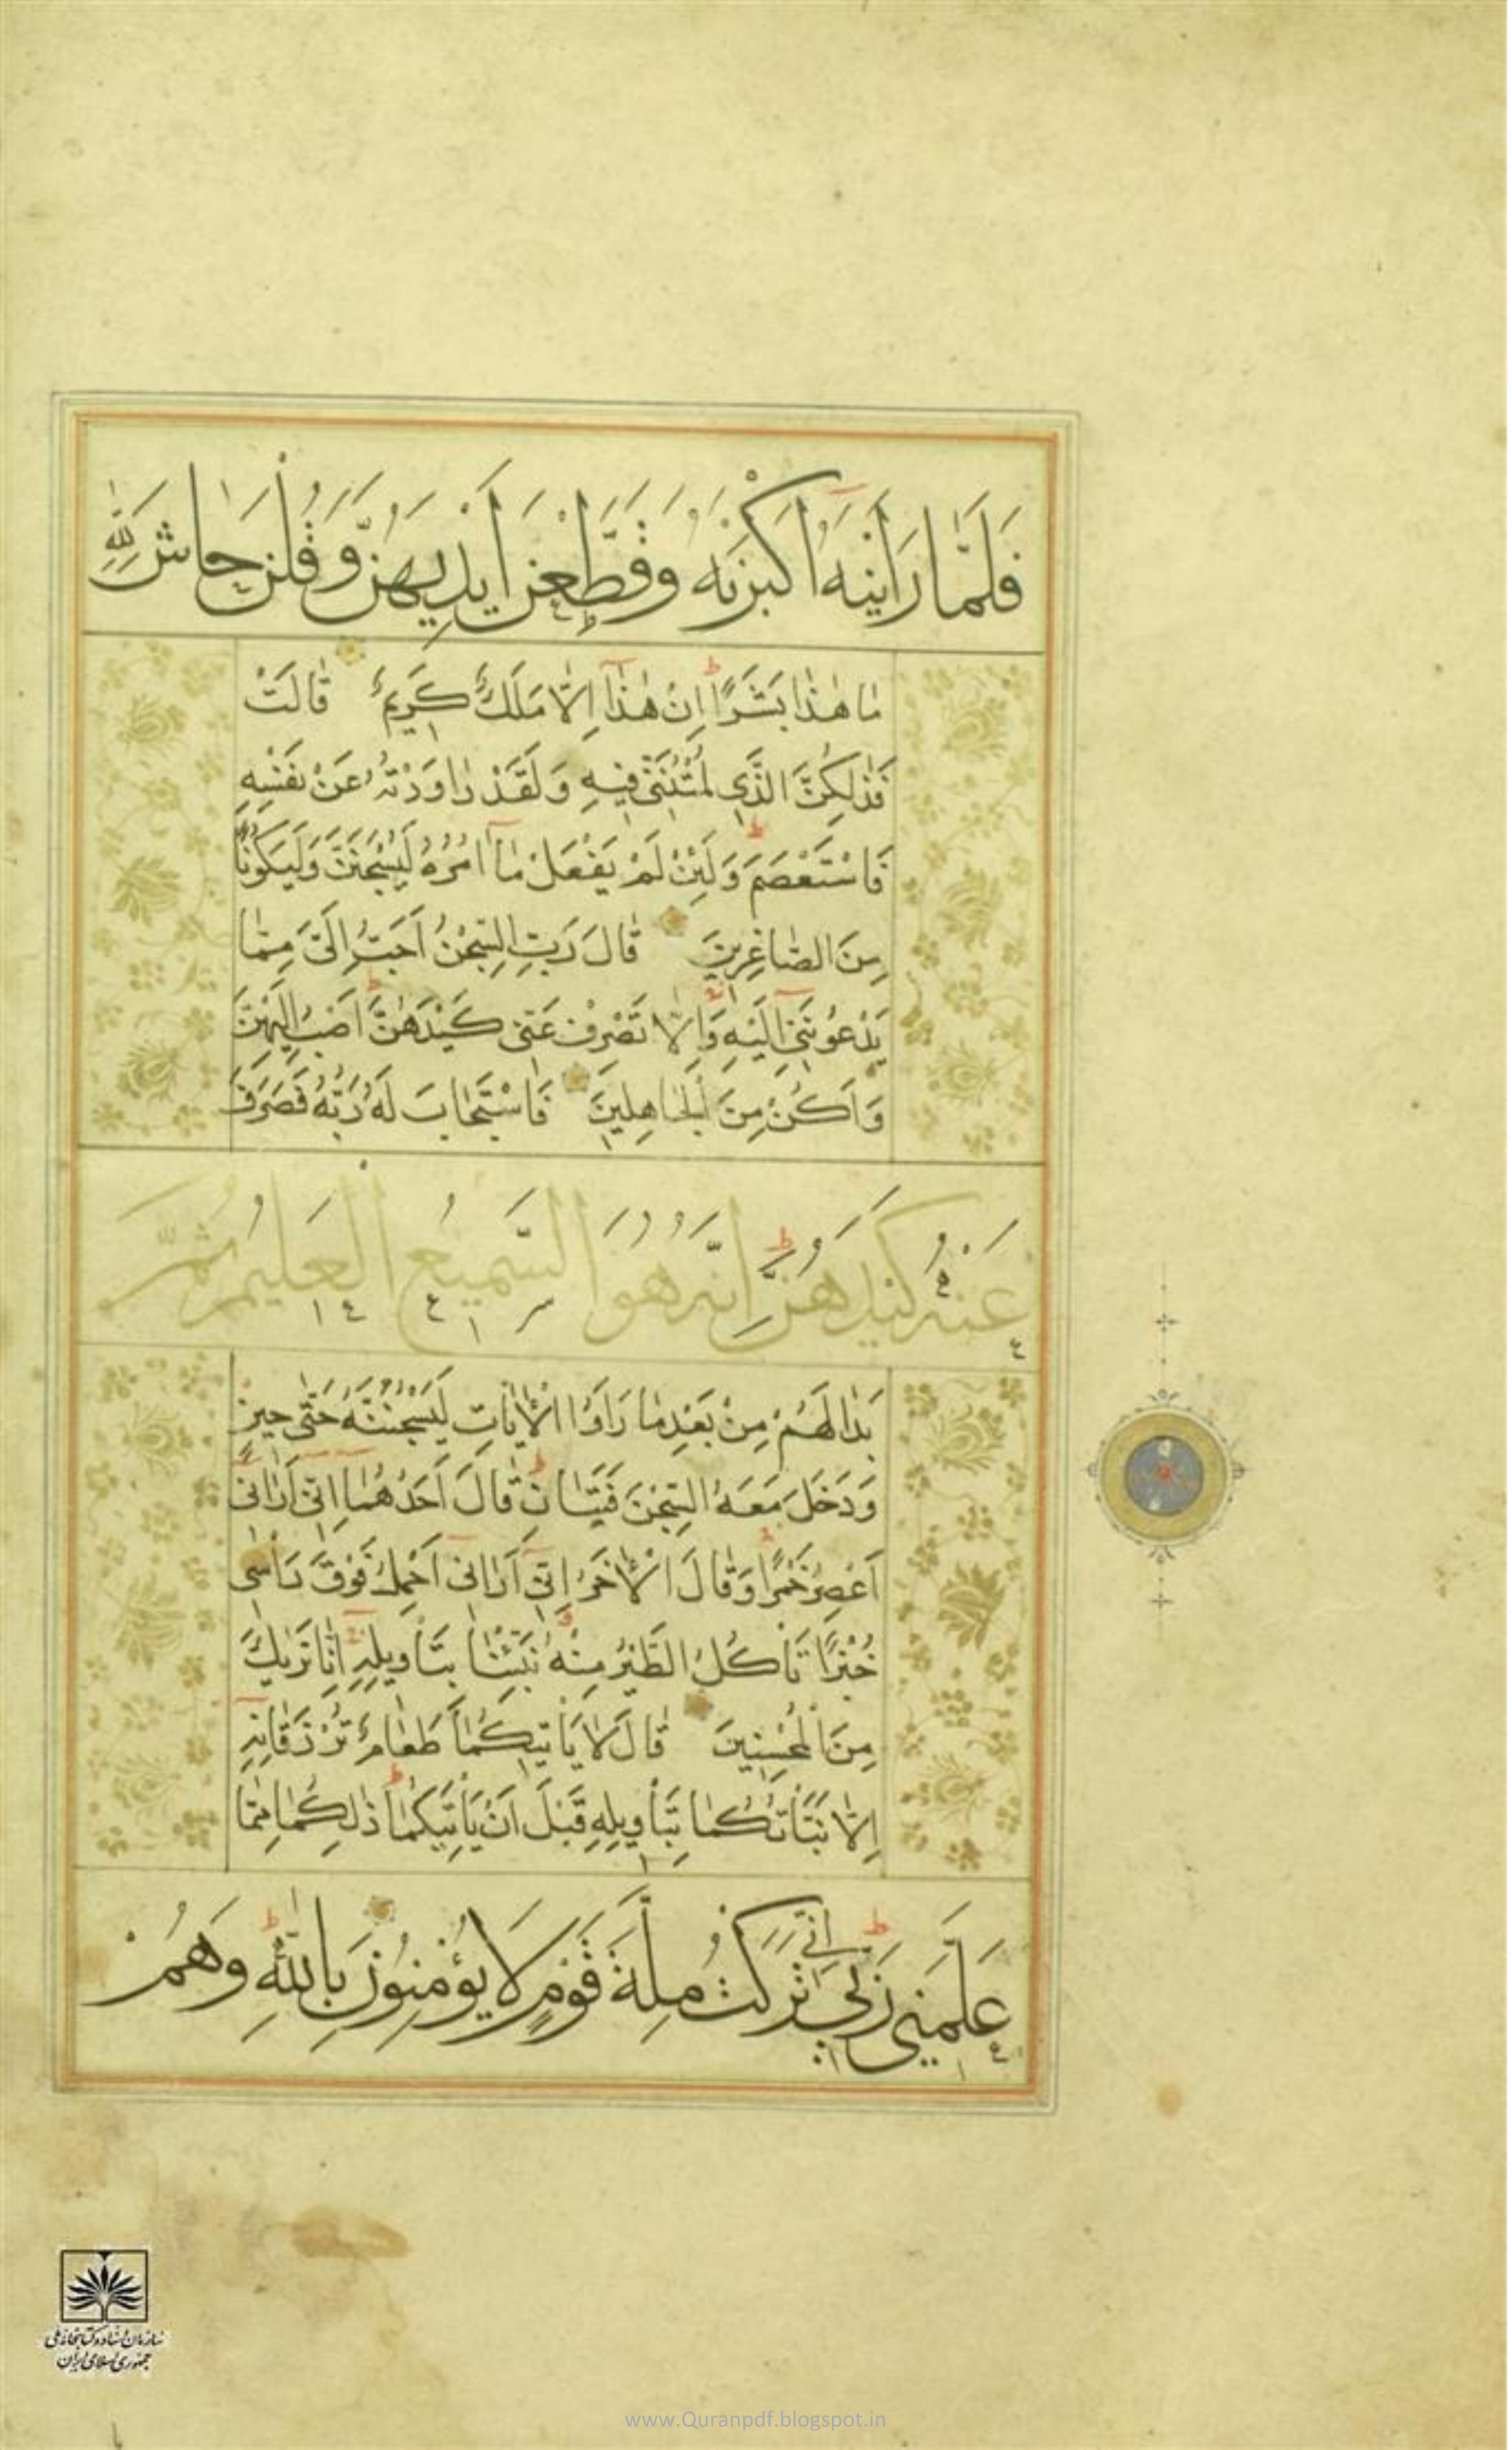 فَلَمَّا رَاَيْنَهُ اَكْبَرْنَهُ وَقَطَّعْنَ اَيْدِيَهُنَّ وَقُلْنَ حَاشَ لِلّٰهِ
مَا هٰذَا بَشَرًا ط اِنْ هٰذَا اِلَّا مَلَكٌ كَرِيمٌ قَالَتْ
فَذٰلِكُنَّ الَّذِي لُمْتُنَّنِي فِيهِ وَلَقَدْ رَاوَدْتُهُ عَنْ نَفْسِهِ
فَاسْتَعْصَمَ ط وَلَئِنْ لَمْ يَفْعَلْ مَا اٰمُرُهُ لَيُسْجَنَنَّ وَلَيَكُونًا
مِنَ الصَّاغِرِينَ قَالَ رَبِّ السِّجْنُ اَحَبُّ اِلَيَّ مِمَّا
يَدْعُونَنِي اِلَيْهِ وَاِلَّا تَصْرِفْ عَنِّي كَيْدَهُنَّ اَصْبُ اِلَيْهِنَّ
وَاَكُنْ مِنَ الْجَاهِلِينَ فَاسْتَجَابَ لَهُ رَبُّهُ فَصَرَفَ
عَنْهُ كَيْدَهُنَّ ط اِنَّهُ هُوَ السَّمِيعُ الْعَلِيمُ ثُمَّ
بَدَا لَهُمْ مِنْ بَعْدِ مَا رَاَوُا الْاٰيَاتِ لَيَسْجُنُنَّهُ حَتّٰى حِينٍ
وَدَخَلَ مَعَهُ السِّجْنَ فَتَيَانِ ط قَالَ اَحَدُهُمَا اِنِّي اَرَانِي
اَعْصِرُ خَمْرًا وَقَالَ الْاٰخَرُ اِنِّي اَرَانِي اَحْمِلُ فَوْقَ رَاْسِي
خُبْزًا تَاْكُلُ الطَّيْرُ مِنْهُ نَبِّئْنَا بِتَاْوِيلِهِ اِنَّا نَرٰيكَ
مِنَ الْمُحْسِنِينَ قَالَ لَا يَاْتِيكُمَا طَعَامٌ تُرْزَقَانِهِ
اِلَّا نَبَّاْتُكُمَا بِتَاْوِيلِهِ قَبْلَ اَنْ يَاْتِيَكُمَا ط ذٰلِكُمَا مِمَّا
عَلَّمَنِي رَبِّي ط اِنِّي تَرَكْتُ مِلَّةَ قَوْمٍ لَا يُؤْمِنُونَ بِاللّٰهِ ط وَهُمْ
سازمان اسناد و کتابخانه ملی
جمهوری اسلامی ایران
www.Quranpdf.blogspot.in